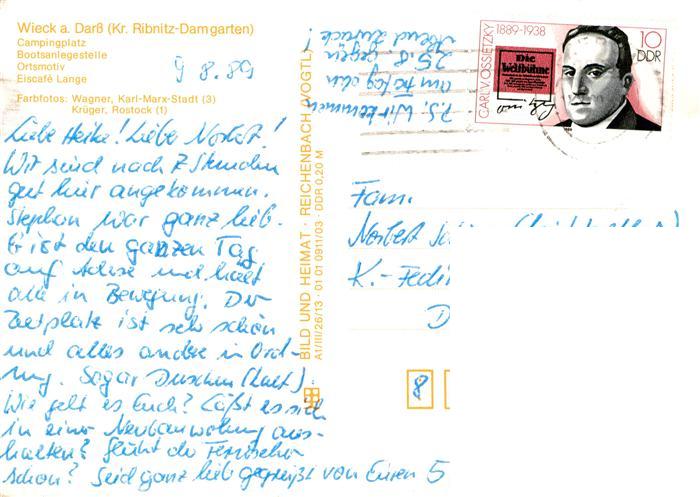 Wieck a. Darß (Kr. Ribnitz-Damgarten)
Campingplatz
Bootsanlegestelle
Ortsmotiv
Eiscafé Lange
Farbfotos: Wagner, Karl-Marx-Stadt (3)
Krüger, Rostock (1)
9 8.89
Liebe Heike! Liebe Norbert!
Wir sind nach 7 Stunden
gut hier angekommen.
Stephan war ganz lieb.
Er ist den ganzen Tag
auf Achse und hält
alle in Bewegung. Der
Zeltplatz ist sehr schön
und alles andere in Ord-
nung. Sogar Duschen (kalt).
Wie geht es Euch? Läßt es sich
in einer Neubauwohnung aus-
halten? Glüht der Fernseher
schon? Seid ganz lieb gegrüßt von Euren 5
P.S. Wir kommen
am Freitag den
25.8. gegen
Abend zurück!
BILD UND HEIMAT · REICHENBACH (VOGTL)
A1/III/26/13 · 01 01 0911/03 · DDR 0,20 M
CARL V. OSSIETZKY 1889-1938
Die Weltbühne
10
DDR
Fam.
Norbert
K.-
D
8